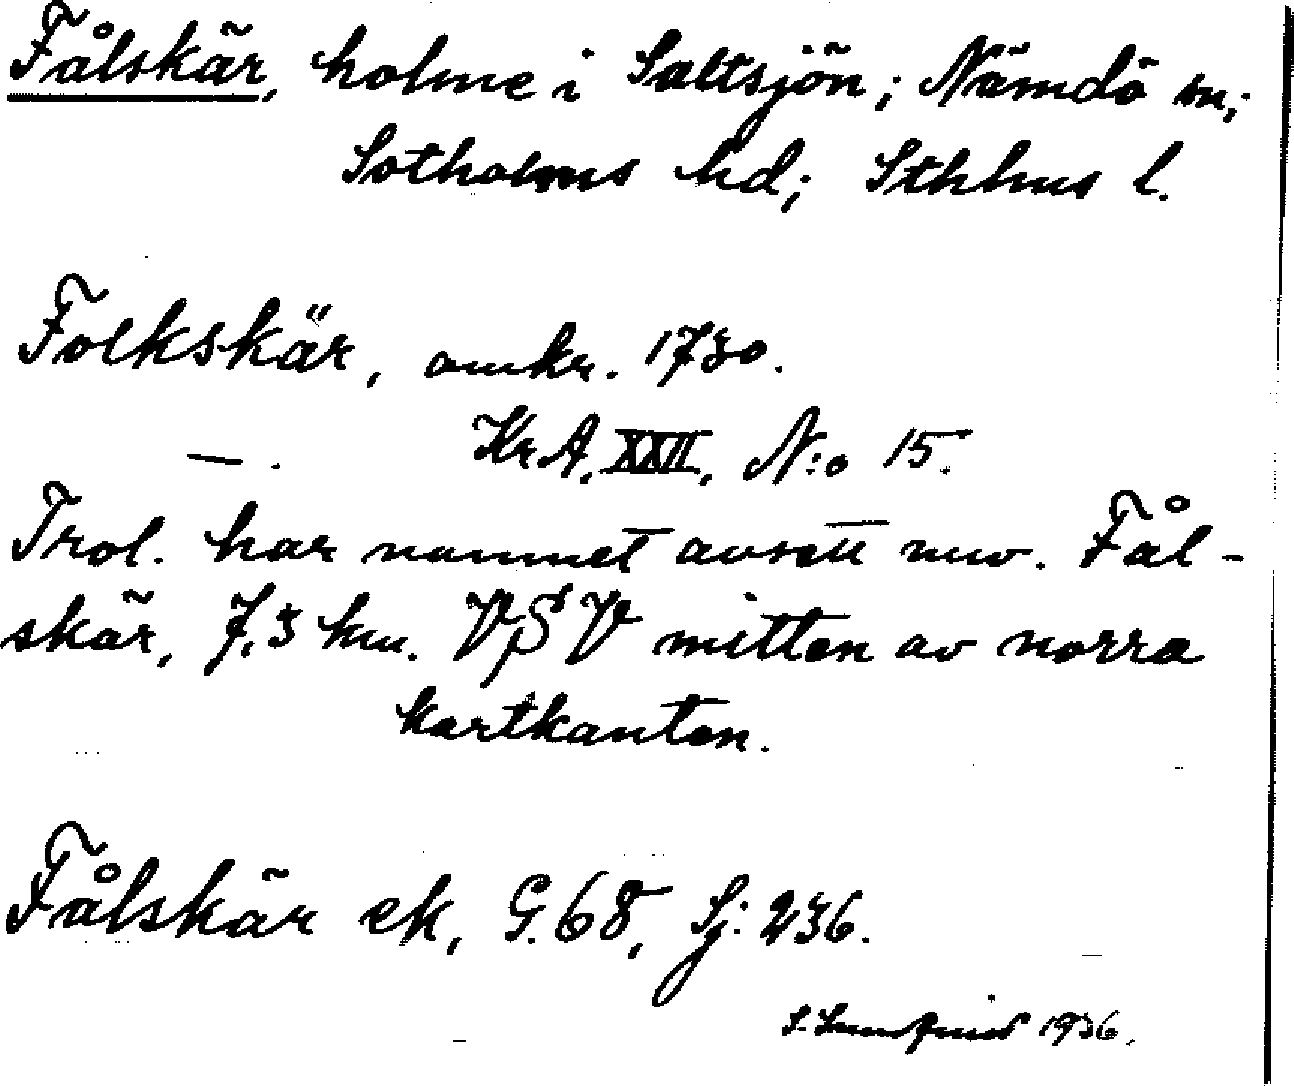 Fålskär, holme i Saltsjön; Nämdö sn;
Sotholms hd; Sthhms l.
Folkskär, omkr. 1730.
—. KrA. XXII, N:o 15.
Trol. har namnet avsett nuv. Fål-
skär, 7,3 km. VSV mitten av norra
kartkanten.
Fålskär ek, G. 68, Sj: 236.
S. 1936.